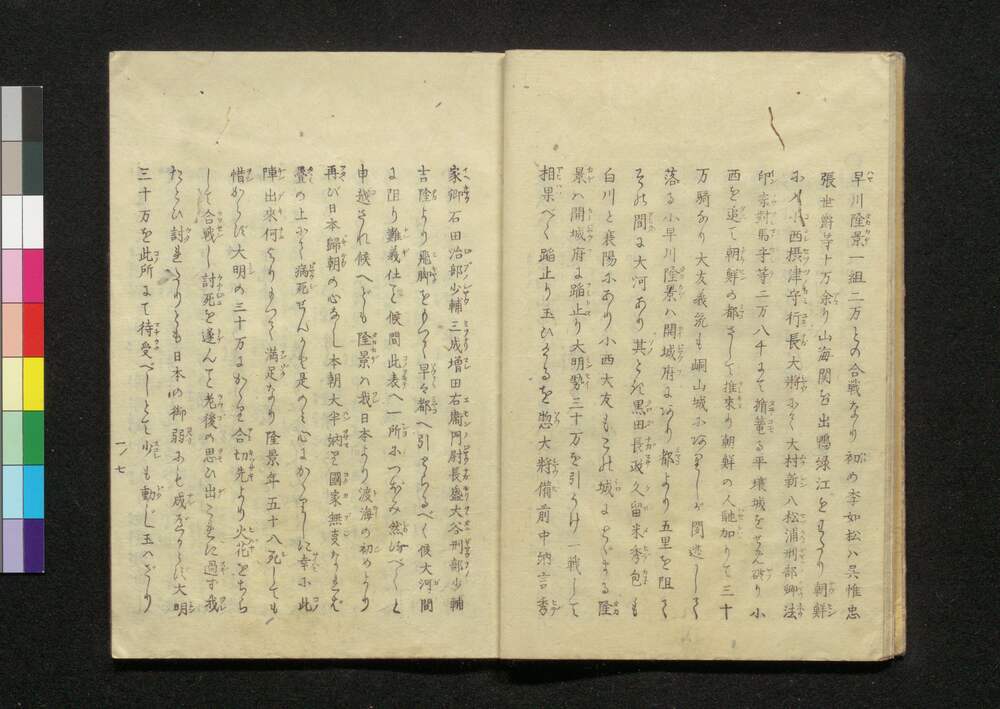 早川隆景一組二万との合戦なり初め李如松ハ呉惟忠
張世爵等十万余り山海関を出鴨緑江をわたり朝鮮
に入小西摂津守行長大将にて大村新八松浦刑部卿法
印宗対馬守等二万八千にて楯篭る平壌城をせめ破り小
西を追て朝鮮の都さして推来り朝鮮の人馳加りて三十
万騎なり大友義統も峒山城に有しが聞迯しさ
落る小早川隆景ハ開城府にあり都より五里を阻て
その間に大河あり其とき黒田長政久留米秀包も
白川と裵陽にあり小西大友もこの城にとゞまる隆
景ハ開城府に蹈止り大明勢三十万を引うけ一戦して
相果べく蹈止り玉ひけるを惣大将備前中納言秀
家卿石田治部少輔三成増田右衛門尉長盛大谷刑部少輔
吉隆より飛脚をもつて早々都へ引とらるべく候大河間
に阻り難義仕と候間此表へ一所につぼみ然るべくと
申越され候へども隆景ハ我日本より渡海の初めより
再び日本歸朝の心なし本朝大半納り國家無支なれば
疊の上にて病死せんかと是のミ心にかゝりしに幸に此
陣出来何よりもつて満足なり隆景年五十八死しても
惜からず大明の三十万にかゝり合切先より火花をちら
して合戦し討死を遂んと老後の思ひ出これに過ず我
たとひ討死たりとも日本の御弱にも成がたからず大明
三十万を此所にて待受べしとて少も動じ玉ハざり
一ノ七